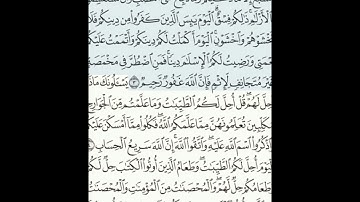 الْأَزْلَٰمِ ذَٰلِكُمْ فِسْقٌ الْيَوْمَ يَئِسَ الَّذِينَ كَفَرُوا مِن دِينِكُمْ فَلَا
تَخْشَوْهُمْ وَاخْشَوْنِ الْيَوْمَ أَكْمَلْتُ لَكُمْ دِينَكُمْ وَأَتْمَمْتُ عَلَيْكُمْ
نِعْمَتِي وَرَضِيتُ لَكُمُ الْإِسْلَٰمَ دِينًا فَمَنِ اضْطُرَّ فِي مَخْمَصَةٍ
غَيْرَ مُتَجَانِفٍ لِّإِثْمٍ فَإِنَّ اللَّهَ غَفُورٌ رَّحِيمٌ ٣ يَسْـَٔلُونَكَ مَاذَا
أُحِلَّ لَهُمْ قُلْ أُحِلَّ لَكُمُ الطَّيِّبَٰتُ وَمَا عَلَّمْتُم مِّنَ الْجَوَارِحِ
مُكَلِّبِينَ تُعَلِّمُونَهُنَّ مِمَّا عَلَّمَكُمُ اللَّهُ فَكُلُوا مِمَّا أَمْسَكْنَ عَلَيْكُمْ
وَاذْكُرُوا اسْمَ اللَّهِ عَلَيْهِ وَاتَّقُوا اللَّهَ إِنَّ اللَّهَ سَرِيعُ الْحِسَابِ
الْيَوْمَ أُحِلَّ لَكُمُ الطَّيِّبَٰتُ وَطَعَامُ الَّذِينَ أُوتُوا الْكِتَٰبَ حِلٌّ لَّكُمْ
وَطَعَامُكُمْ حِلٌّ لَّهُمْ وَالْمُحْصَنَٰتُ مِنَ الْمُؤْمِنَٰتِ وَالْمُحْصَنَٰتُ